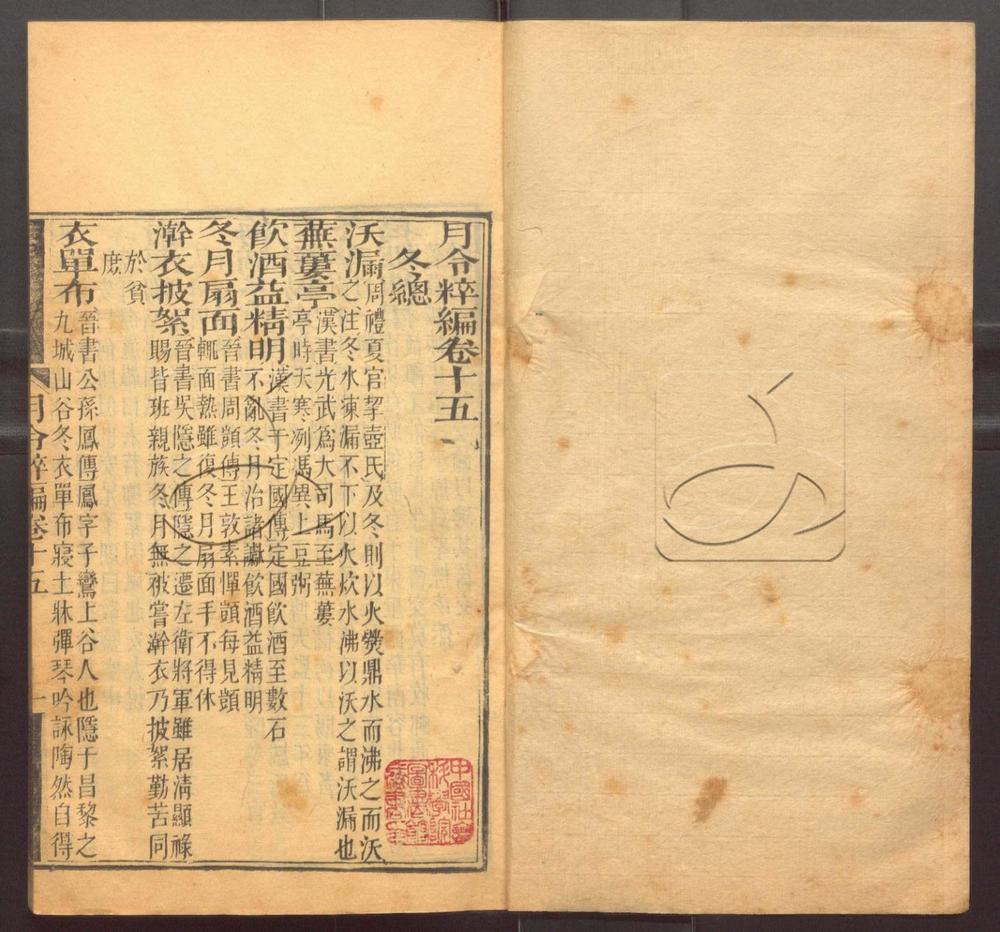 月令粹編卷十五
冬總
沃漏周禮夏官挈壺氏及冬則以火爨鼎水而沸之而沃
之注冬水凍漏不下以火炊水沸以沃之謂沃漏也
蕪蔞亭漢書光武為大司馬至蕪蔞
亭時天寒冽馮異上豆粥
飲酒益精明漢書于定國傳定國飲酒至數石
不亂冬月治請讞飲酒益精明
冬月扇面晉書周顗傳王敦素憚顗每見顗
輒面熱雖復冬月扇面手不得休
澣衣披絮晉書吳隱之傳隱之遷左衛將軍雖居清顯祿
賜皆班親族冬月無被嘗澣衣乃披絮勤苦同
於貧
庶
衣單布晉書公孫鳳傳鳳字子鸞上谷人也隱于昌黎之
九城山谷冬衣單布寢土牀彈琴吟詠陶然自得
月令粹編卷十五
一
中國社會
科學院
圖書館